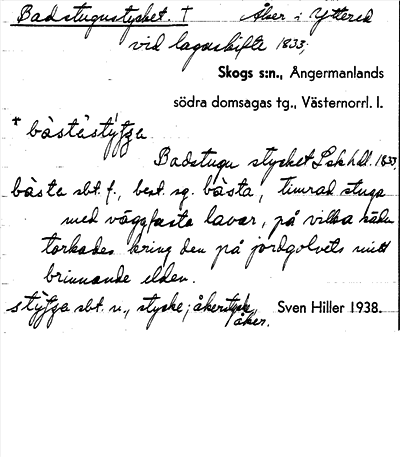 Badstugustycket. † Åker i Yttered
vid lagaskifte 1833;
Skogs s:n., Ångermanlands
södra domsagas tg., Västernorrl. l.
† bàstàstýtja
Badstugu stycket Lskhdl. 1833,
bàsta sbt. f., best. sg. bàsta, timrad stuga
med väggfasta lavar, på vilka säden
torkades kring den på jordgolvets mitt
brinnande elden.
stýtja sbt. n., stycke; åkerstycke,
åker.
Sven Hiller 1938.